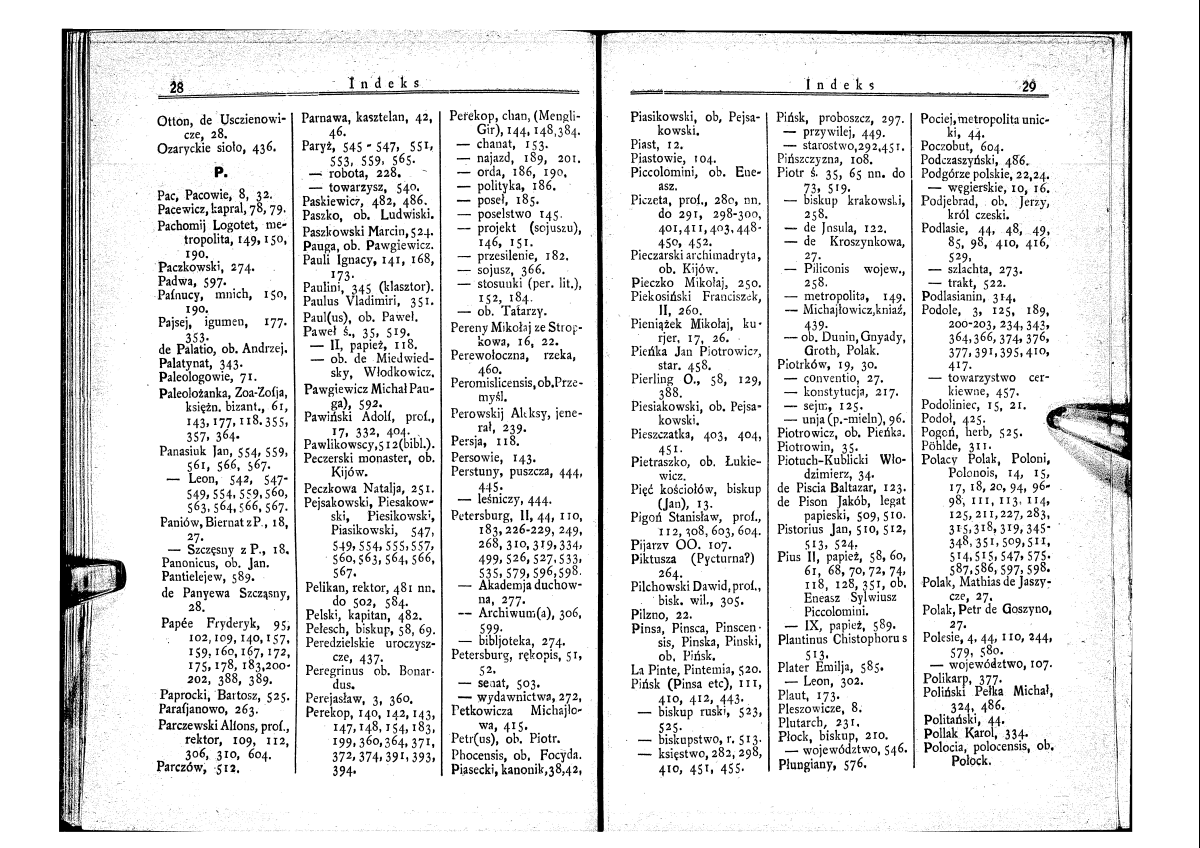 28
Indeks
Otton, de Usczienowi-
cze, 28.
Ozaryckie sioło, 436.
P.
Pac, Pacowie, 8, 32.
Pacewicz, kapral, 78, 79.
Pachomij Logotet, me-
tropolita, 149, 150,
190.
Paczkowski, 274.
Padwa, 597.
Pafnucy, mnich, 150,
190.
Pajsej, igumen, 177.
353.
de Palatio, ob. Andrzej.
Palatynat, 343.
Paleologowie, 71.
Paleolożanka, Zoa-Zofja,
księżn. bizant., 61,
143, 177, 118. 355,
357, 364.
Panasiuk Jan, 554, 559,
561, 566, 567.
— Leon, 542, 547-
549, 554, 559, 560,
563, 564, 566, 567.
Paniów, Biernat z P., 18,
27.
— Szczęsny z P., 18.
Panonicus, ob. Jan.
Pantielejew, 589.
de Panyewa Szcząsny,
28.
Papée Fryderyk, 95,
102, 109, 140, 157,
159, 160, 167, 172,
175, 178, 183, 200-
202, 388, 389.
Paprocki, Bartosz, 525.
Parafjanowo, 263.
Parczewski Alfons, prof.,
rektor, 109, 112,
306, 310, 604.
Parczów, 512.
Parnawa, kasztelan, 42,
46.
Paryż, 545 - 547, 551,
553, 559, 565.
— robota, 228.
— towarzysz, 540.
Paskiewicz, 482, 486.
Paszko, ob. Ludwiski.
Paszkowski Marcin, 524.
Pauga, ob. Pawgiewicz.
Pauli Ignacy, 141, 168,
173.
Paulini, 345 (klasztor).
Paulus Vladimiri, 351.
Paul(us), ob. Paweł.
Paweł ś., 35, 519.
— II, papież, 118.
— ob. de Miedwied-
sky, Włodkowicz.
Pawgiewicz Michał Pau-
ga), 592.
Pawiński Adolf, prof.,
17, 332, 404.
Pawlikowscy, 512 (bibl.).
Peczerski monaster, ob.
Kijów.
Peczkowa Natalja, 251.
Pejsakowski, Piesakow-
ski, Piesikowski,
Piasikowski, 547,
549, 554, 555, 557,
560, 563, 564, 566,
567.
Pelikan, rektor, 481 nn.
do 502, 584.
Pelski, kapitan, 482.
Pełesch, biskup, 58, 69.
Peredzielskie uroczysz-
cze, 437.
Peregrinus ob. Bonar-
dus.
Perejasław, 3, 360.
Perekop, 140, 142, 143,
147, 148, 154, 183,
199, 360, 364, 371,
372, 374, 391, 393,
394.
Perekop, chan, (Mengli-
Gir), 144, 148, 384.
— chanat, 153.
— najazd, 189, 201.
— orda, 186, 190.
— polityka, 186.
— poseł, 185.
— poselstwo 145.
— projekt (sojuszu),
146, 151.
— przesilenie, 182.
— sojusz, 366.
— stosunki (per. lit.),
152, 184.
— ob. Tatarzy.
Pereny Mikołaj ze Strop-
kowa, 16, 22.
Perewołoczna, rzeka,
460.
Peromislicensis, ob. Prze-
myśl.
Perowskij Aleksy, jene-
rał, 239.
Persja, 118.
Persowie, 143.
Perstuny, puszcza, 444,
445.
— leśniczy, 444.
Petersburg, II, 44, 110,
183, 226-229, 249,
268, 310, 319, 334,
499, 526, 527, 533,
535, 579, 596, 598.
— Akademja duchow-
na, 277.
— Archiwum(a), 306,
599.
— bibljoteka, 274.
Petersburg, rękopis, 51,
52.
— senat, 503.
— wydawnictwa, 272,
Petkowicza Michajło-
wa, 415.
Petr(us), ob. Piotr.
Phocensis, ob. Focyda.
Piasecki, kanonik, 38, 42,
Indeks
29
Piasikowski, ob, Pejsa-
kowski.
Piast, 12.
Piastowie, 104.
Piccolomini, ob. Ene-
asz.
Piczeta, prof., 280, nn.
do 291, 298-300,
401, 411, 403, 448-
450, 452.
Pieczarski archimadryta,
ob. Kijów.
Pieczko Mikołaj, 250.
Piekosiński Franciszek,
II, 260.
Pieniążek Mikołaj, ku-
rjer, 17, 26.
Pieńka Jan Piotrowicz,
star. 458.
Pierling O., 58, 129,
388.
Piesiakowski, ob. Pejsa-
kowski.
Pieszczatka, 403, 404,
451.
Pietraszko, ob. Łukie-
wicz.
Pięć kościołów, biskup
(Jan), 13.
Pigoń Stanisław, prof.,
112, 308, 603, 604.
Pijarzy OO. 107.
Piktusza (Pycturna?)
264.
Pilchowski Dawid, prof.,
bisk. wil., 305.
Pilzno, 22.
Pinsa, Pinsca, Pinscen-
sis, Pinska, Pinski,
ob. Pińsk.
La Pinte, Pintemia, 520.
Pińsk (Pinsa etc), 111,
410, 412, 443.
— biskup ruski, 523,
525.
— biskupstwo, r. 513.
— księstwo, 282, 298,
410, 451, 455.
Pińsk, proboszcz, 297.
— przywilej, 449.
— starostwo, 292, 451.
Pińszczyzna, 108.
Piotr ś. 35, 65 nn. do
73, 519.
— biskup krakowski,
258.
— de Jnsula, 122.
— de Kroszynkowa,
27.
— Piliconis wojew.,
258.
— metropolita, 149.
— Michajłowicz, kniaź,
439.
— ob. Dunin, Gnyady,
Groth, Polak.
Piotrków, 19, 30.
— conventio, 27.
— konstytucja, 217.
— sejm, 125.
— unja (p.-mieln), 96.
Piotrowicz, ob. Pieńka.
Piotrowin, 35.
Piotuch-Kublicki Wło-
dzimierz, 34.
de Piscia Baltazar, 123.
de Pison Jakób, legat
papieski, 509, 510.
Pistorius Jan, 510, 512,
513, 524.
Pius II, papież, 58, 60,
61, 68, 70, 72, 74,
118, 128, 351, ob.
Eneasz Sylwiusz
Piccolomini.
— IX, papież, 589.
Plantinus Chistophorus
513.
Plater Emilja, 585.
— Leon, 302.
Plaut, 173.
Pleszowicze, 8.
Plutarch, 231.
Płock, biskup, 210.
— województwo, 546.
Plungiany, 576.
Pociej, metropolita unic-
ki, 44.
Poczobut, 604.
Podczaszyński, 486.
Podgórze polskie, 22, 24.
— węgierskie, 10, 16.
Podjebrad, ob. Jerzy,
król czeski.
Podlasie, 44, 48, 49,
85, 98, 410, 416,
529,
— szlachta, 273.
— trakt, 522.
Podlasianin, 314.
Podole, 3, 125, 189,
200-203, 234, 343,
364, 366, 374, 376,
377, 391, 395, 410,
417.
— towarzystwo cer-
kiewne, 457.
Podoliniec, 15, 21.
Podoł, 425.
Pogoń, herb, 525.
Pöhlde, 311.
Polacy Polak, Poloni,
Polonois, 14, 15,
17, 18, 20, 94, 96-
98, 111, 113, 114,
125, 211, 227, 283,
315, 318, 319, 345-
348, 351, 509, 511,
514, 515, 547, 575.
587, 586, 597, 598.
Polak, Mathias de Jaszy-
cze, 27.
Polak, Petr de Goszyno,
27.
Polesie, 4, 44, 110, 244,
579, 580.
— województwo, 107.
Polikarp, 377.
Poliński Pełka Michał,
324, 486.
Politański, 44.
Pollak Karol, 334.
Polocia, polocensis, ob.
Połock.